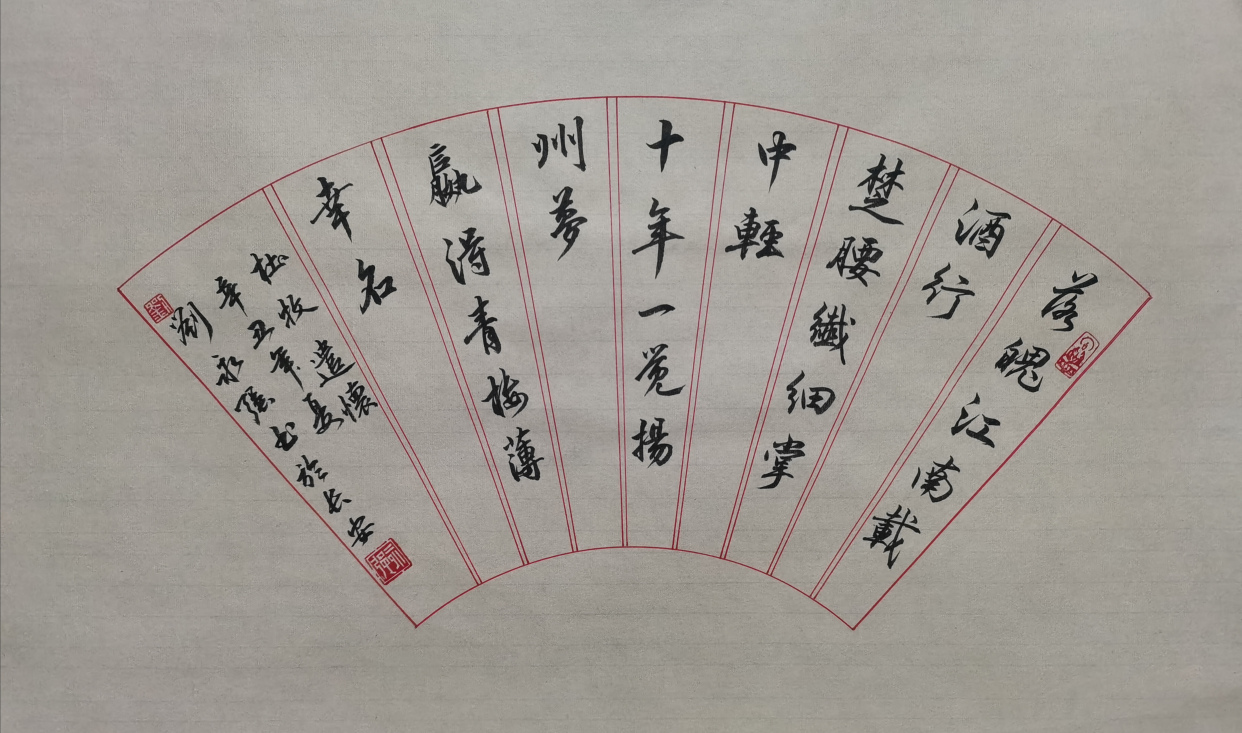 落魄江南載
酒行
楚腰纖細掌
中輕
十年一覺揚
州夢
贏得青樓薄
幸名
杜牧遣懷
辛丑年夏
劉永强书於长安